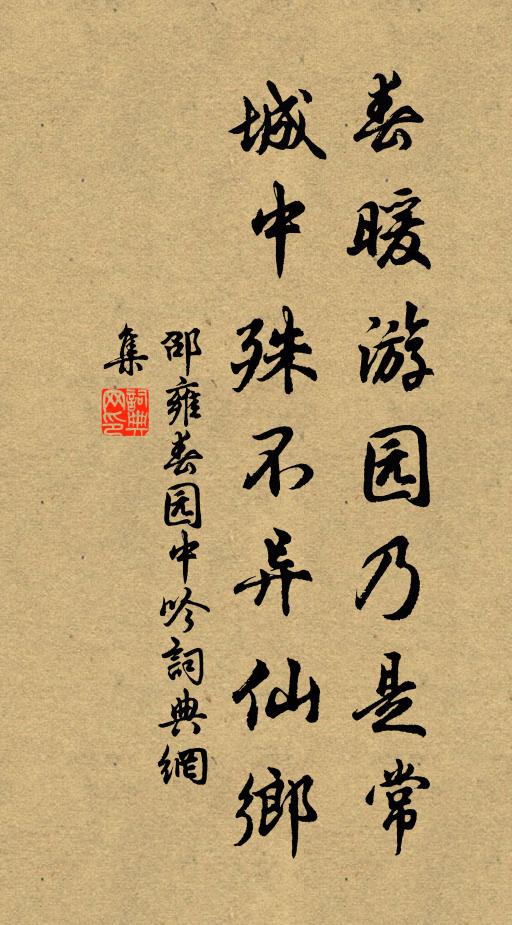 春暖游园乃是常
城中殊不异仙鄉
邵雍春园中吟詞典網
集
詞典
网印